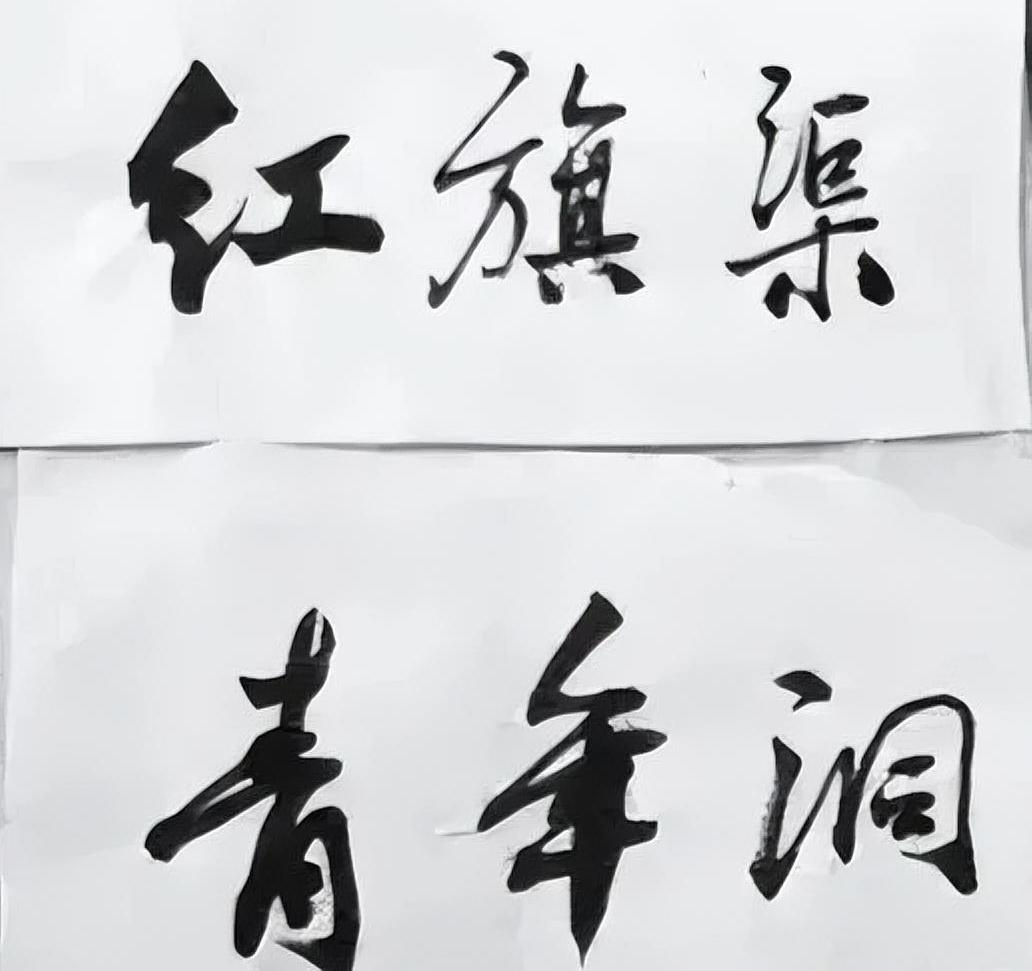 红旗渠
青年洞